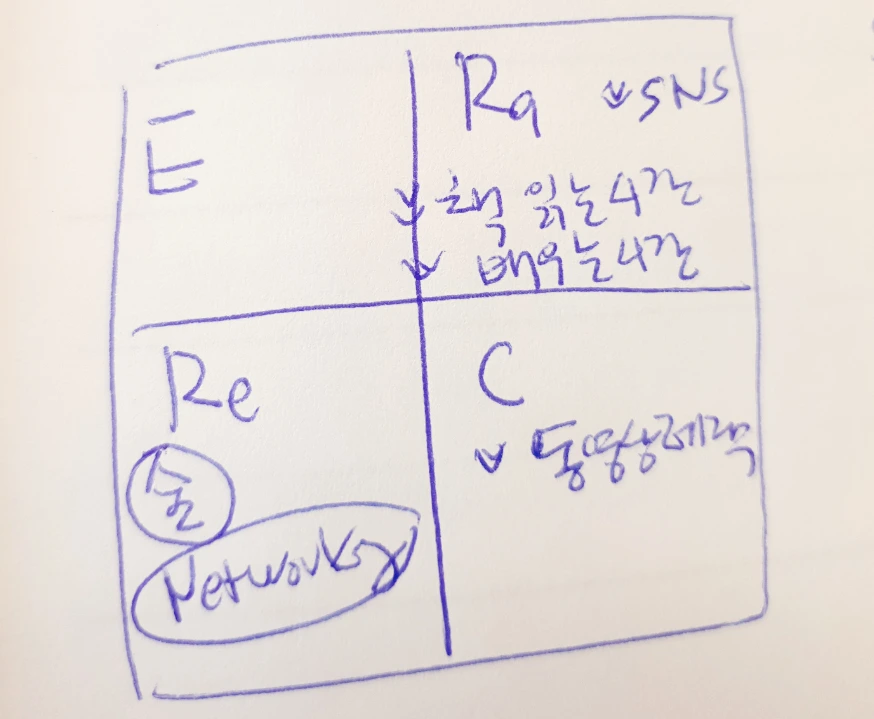 E
Ra ∨ SNS
∨ 책 읽는 시간
∨ 배우는 시간
Re
술
Networking
C
∨ 동영상제작